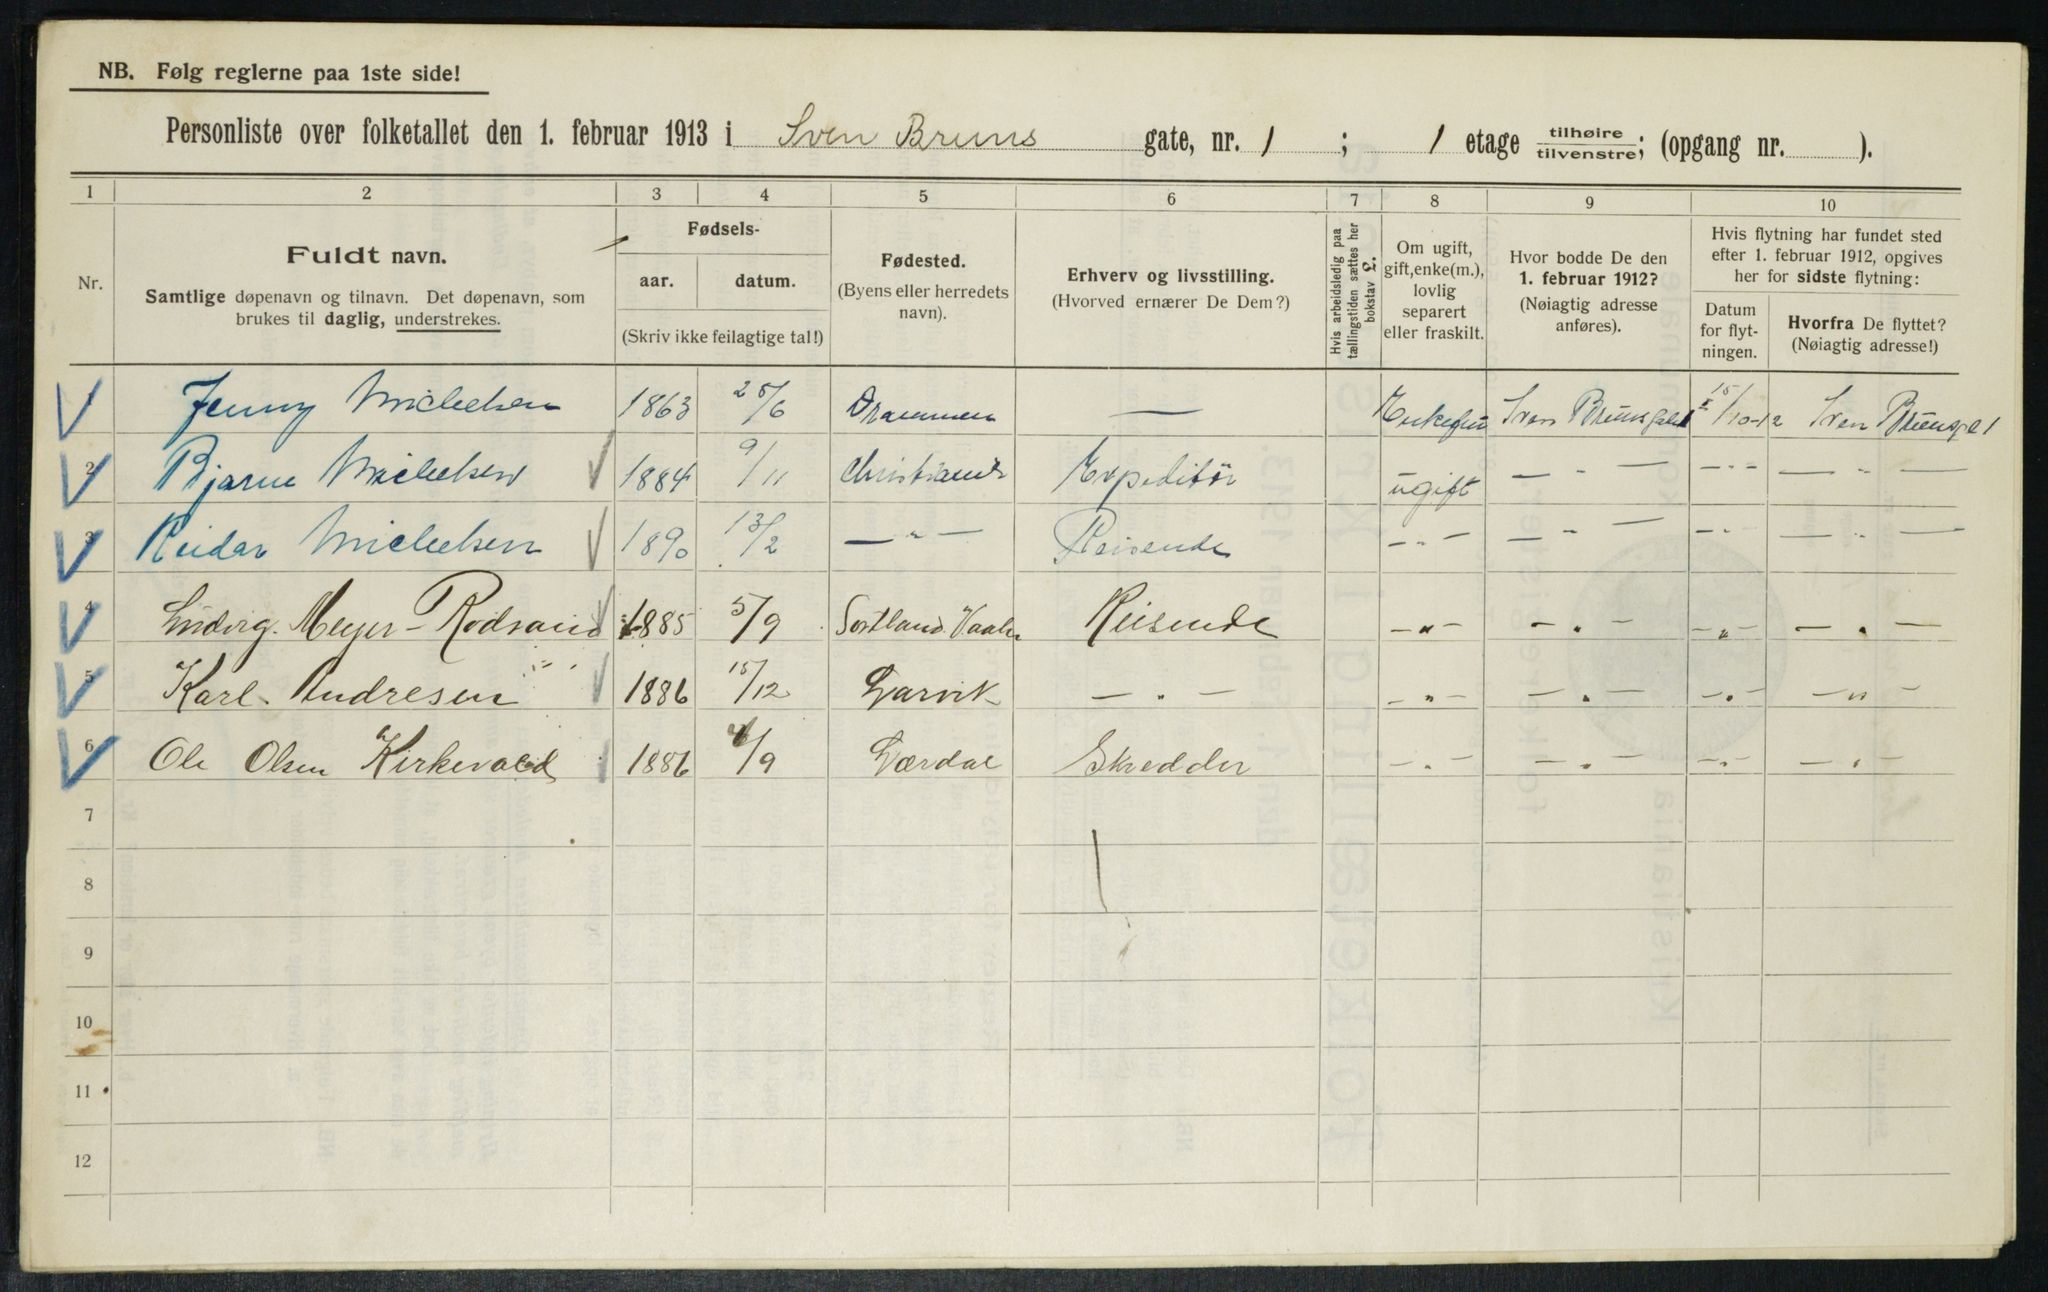 NB. Følg reglerne paa 1ste side!
Personliste over folketallet den 1. februar 1913 i Sven Bruns gate, nr. 1 ; 1 etage tilhøire/tilvenstre; (opgang nr. ).
1 2 3 4 5 6 7 8 9 10
Nr.
Fuldt navn.
Samtlige døpenavn og tilnavn. Det døpenavn, som
brukes til daglig, understrekes.
Fødsels-
aar. datum.
(Skriv ikke feilagtige tal!)
Fødested.
(Byens eller herredets
navn).
Erhverv og livsstilling.
(Hvorved ernærer De Dem?)
Hvis arbeidsledig paa
tællingstiden sættes her
bokstav L.
Om ugift,
gift, enke(m.),
lovlig
separert
eller fraskilt.
Hvor bodde De den
1. februar 1912?
(Nøiagtig adresse
anføres).
Hvis flytning har fundet sted
efter 1. februar 1912, opgives
her for sidste flytning:
Datum
for flyt-
ningen.
Hvorfra De flyttet?
(Nøiagtig adresse!)
1 Jenny Michelsen 1863 25/6 Drammen — Enkefru Sven Brunsgate 1 15/10-12 Sven Brunsgt 1
2 Bjarne Michelsen 1884 9/11 Christiania Expeditör ugift — " — — " — — " —
3 Reidar Michelsen 1890 13/2 — " — Reisende — " — — " — — " — — " —
4 Ludvig Meyer-Rodsand 1885 5/9 Sortland Reisende — " — — " — — " — — " —
5 Karl Andresen 1886 15/12 Larvik — " — — " — — " — — " — — " —
6 Ole Olsen Kirkevold 1886 /9 Lærdal Skredder — " — — " — — " — — " —
7
8
9
10
11
12